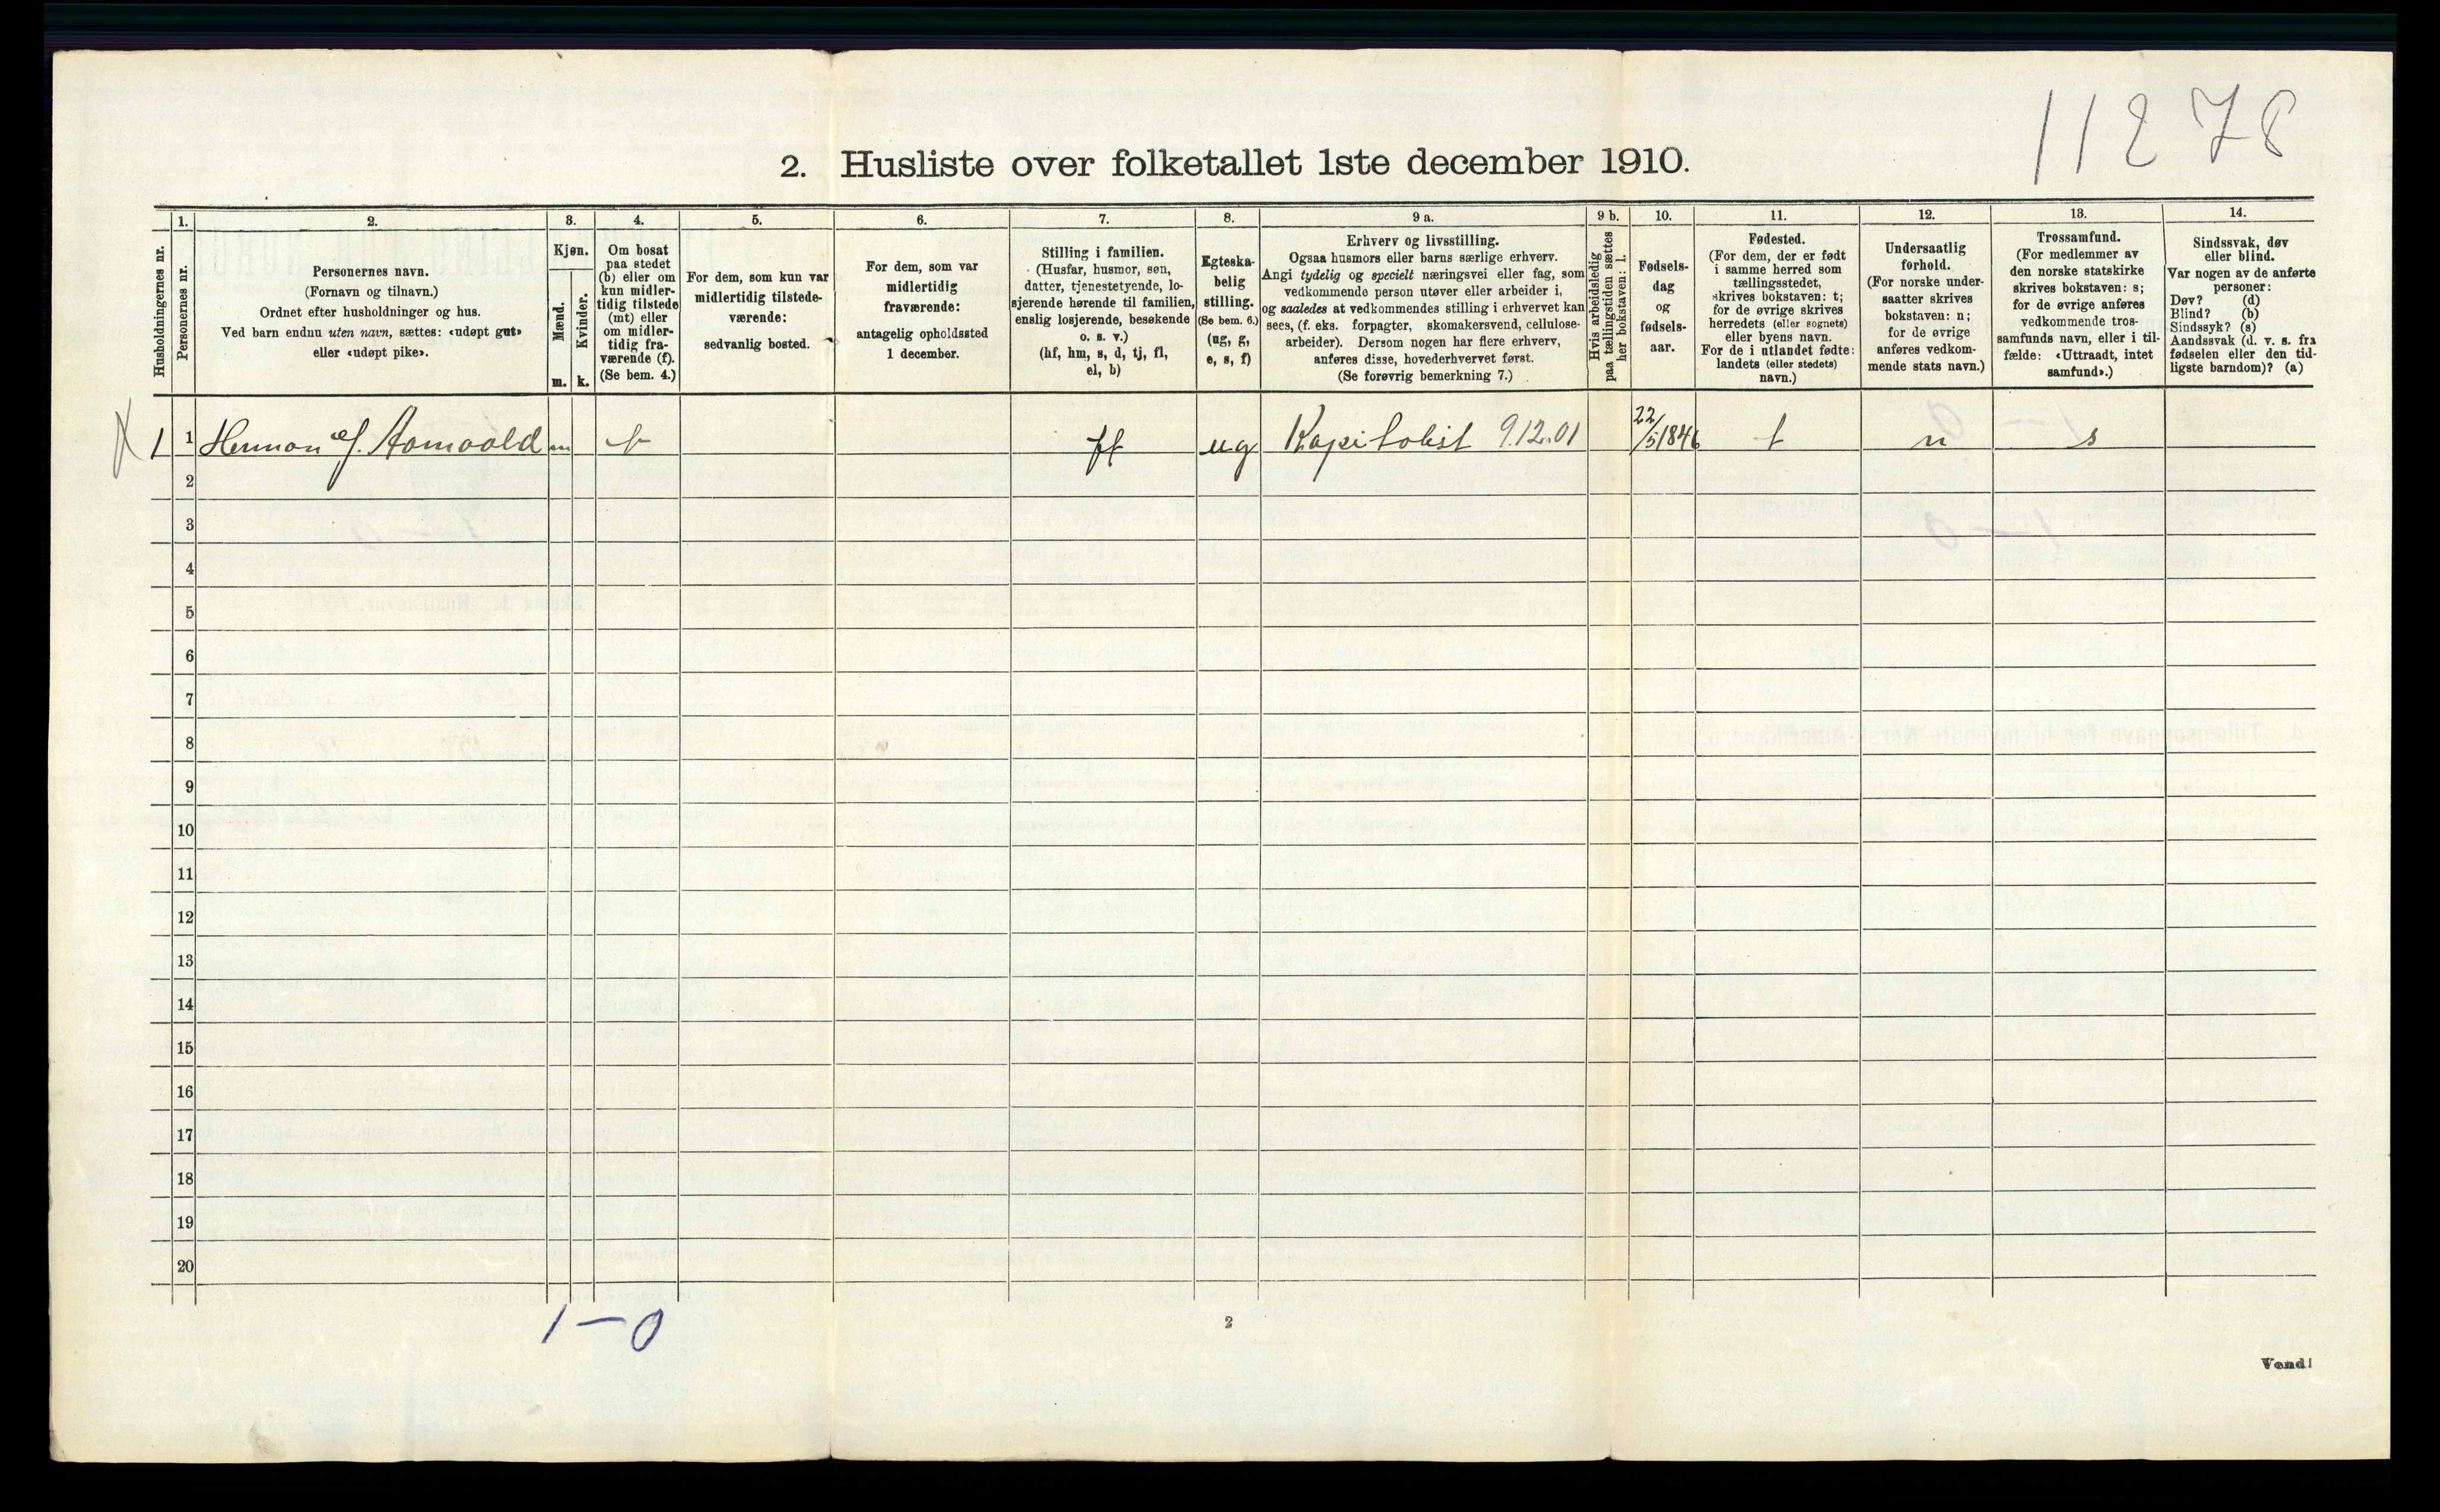 11278
2. Husliste over folketallet 1ste december 1910.
Husholdningernes nr.
1.
Personernes nr.
2.
Personernes navn.
(Fornavn og tilnavn.)
Ordnet efter husholdninger og hus.
Ved barn endnu uten navn, sættes: «udøpt gut»
eller «udøpt pike».
3.
Kjøn.
Mænd.
Kvinder.
m. k.
4.
Om bosat
paa stedet
(b) eller om
kun midler-
tidig tilstede
(mt) eller
om midler-
tidig fra-
værende (f).
(Se bem. 4.)
5.
For dem, som kun var
midlertidig tilstede-
værende:
sedvanlig bosted.
6.
For dem, som var
midlertidig
fraværende:
antagelig opholdssted
1 december.
7.
Stilling i familien.
(Husfar, husmor, søn,
datter, tjenestetyende, lo-
sjerende hørende til familien,
enslig losjerende, besøkende
o. s. v.)
(hf, hm, s, d, tj, fl,
el, b)
8.
Egteska-
belig
stilling.
(Se bem. 6.)
(ug, g,
e, s, f)
9 a.
Erhverv og livsstilling.
Ogsaa husmors eller barns særlige erhverv.
Angi tydelig og specielt næringsvei eller fag, som
vedkommende person utøver eller arbeider i,
og saaledes at vedkommendes stilling i erhvervet kan
sees, (f. eks. forpagter, skomakersvend, cellulose-
arbeider). Dersom nogen har flere erhverv,
anføres disse, hovederhvervet først.
(Se forøvrig bemerkning 7.)
9 b.
Hvis arbeidsledig
paa tællingstiden sættes
her bokstaven: l.
10.
Fødsels-
dag
og
fødsels-
aar.
11.
Fødested.
(For dem, der er født
i samme herred som
tællingsstedet,
skrives bokstaven: t;
for de øvrige skrives
herredets (eller sognets)
eller byens navn.
For de i utlandet fødte:
landets (eller stedets)
navn.)
12.
Undersaatlig
forhold.
(For norske under-
saatter skrives
bokstaven: n;
for de øvrige
anføres vedkom-
mende stats navn.)
13.
Trossamfund.
(For medlemmer av
den norske statskirke
skrives bokstaven: s;
for de øvrige anføres
vedkommende tros-
samfunds navn, eller i til-
fælde: «Uttraadt, intet
samfund».)
14.
Sindssvak, døv
eller blind.
Var nogen av de anførte
personer:
Døv? (d)
Blind? (b)
Sindssyk? (s)
Aandssvak (d. v. s. fra
fødselen eller den tid-
ligste barndom)? (a)
X 1 1 Herman J. Aamodt m ug Kapitalist 9.12.01 22/5 1846 t n s
2
3
4
5
6
7
8
9
10
11
12
13
14
15
16
17
18
19
20
1—0
2
Vend!